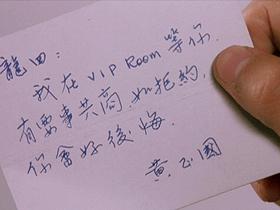 龍田：
我在VIP Room等你
有要事共商．如拒約，
你會好後悔．
黃正國